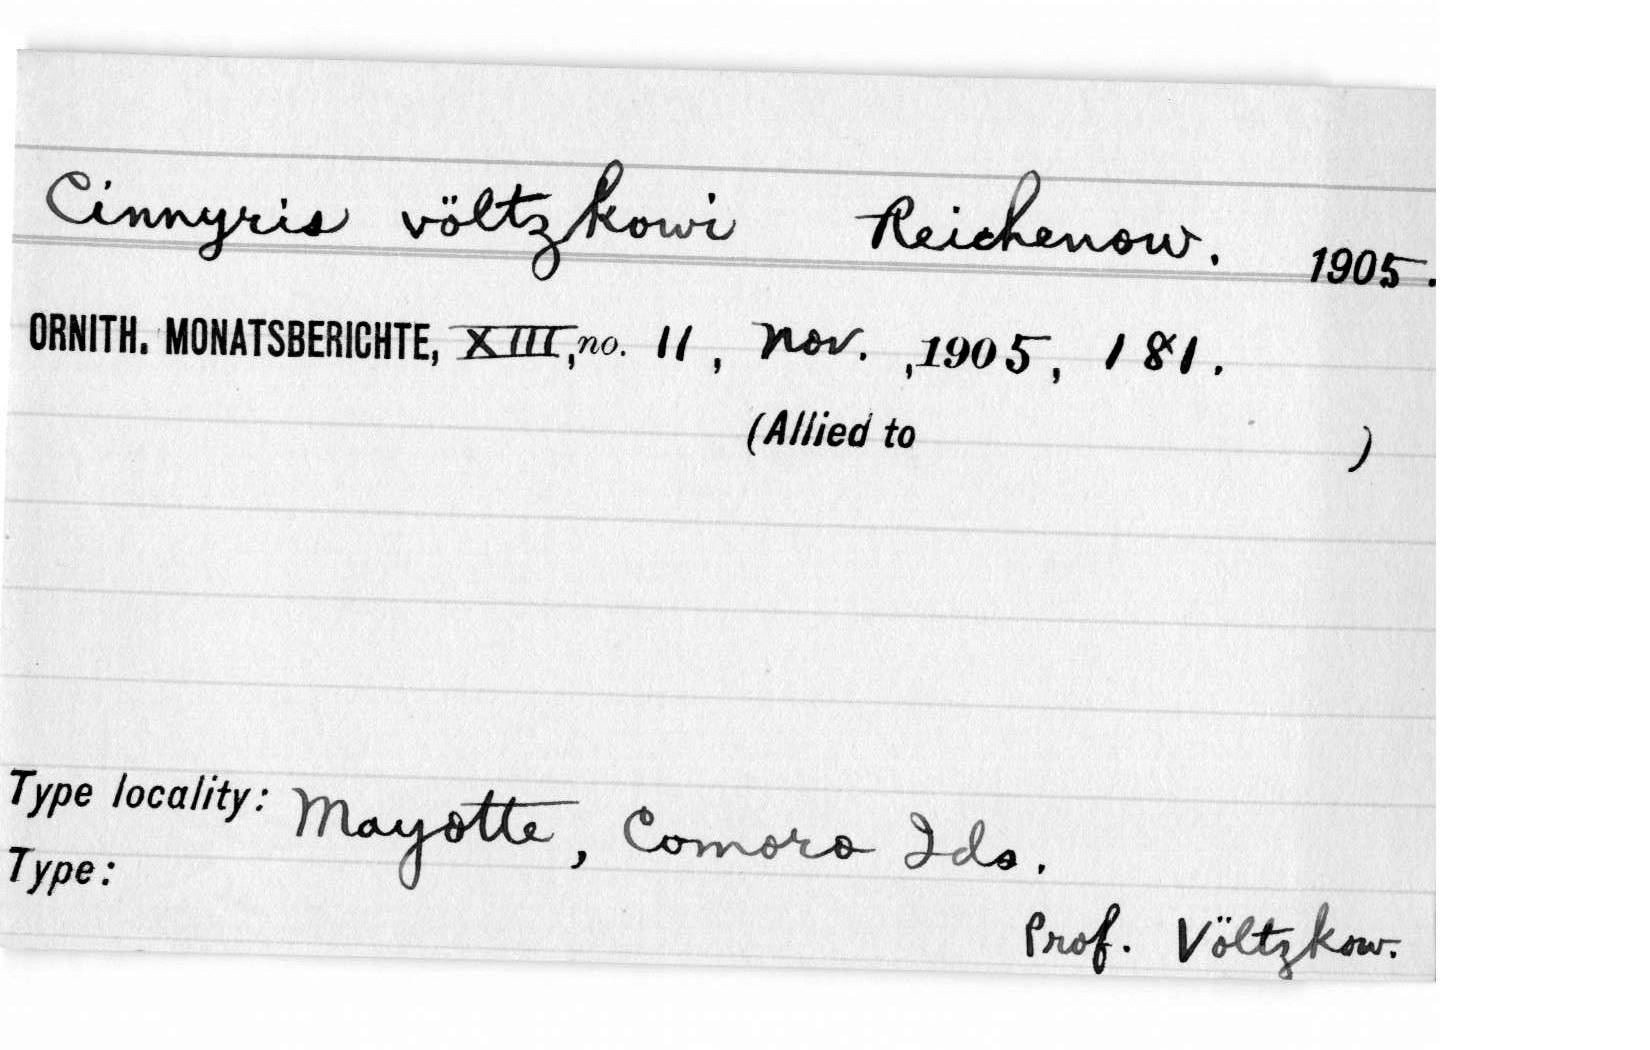 Cinnyris völtzkowi Reichenow. 1905.
ORNITH. MONATSBERICHTE, XIII, no. 11, Nov. ,1905, 181.
(Allied to )
Type locality: Mayotte, Comoro Ids.
Type:
Prof. Völtzkow.